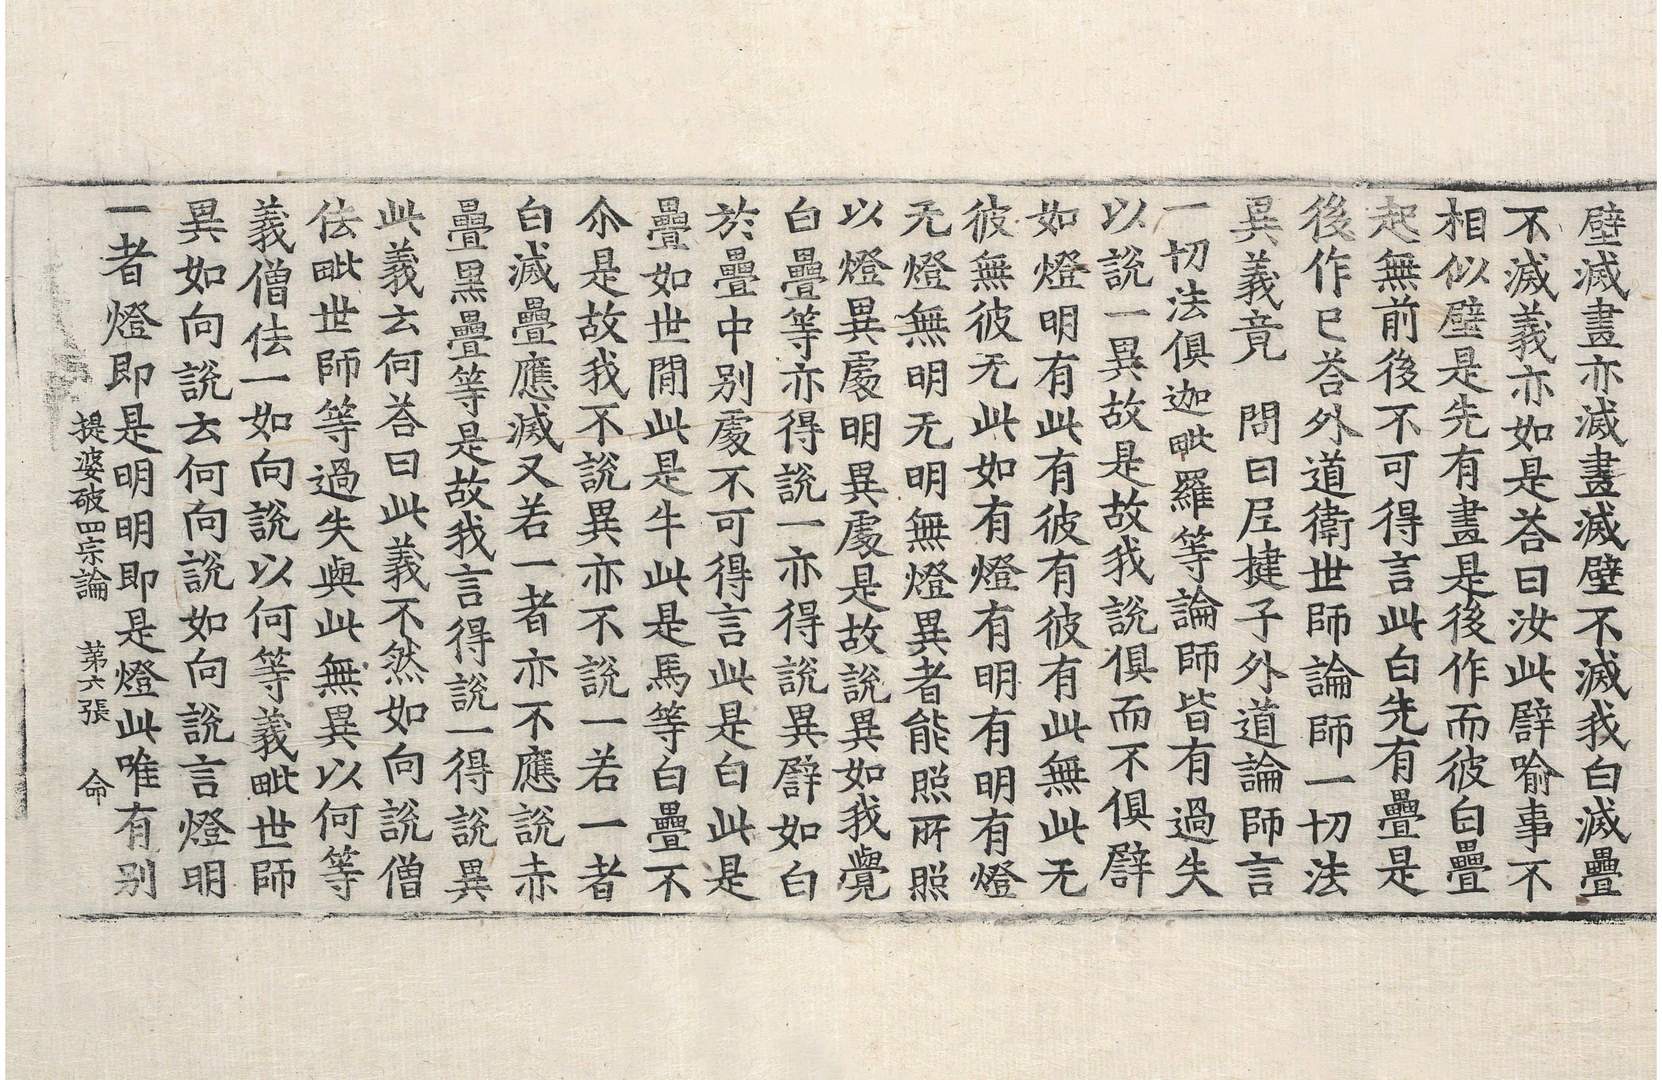 壁滅晝亦滅晝滅壁不滅我白滅疊
不滅義亦如是荅曰汝此譬喻事不
相似壁是先有晝是後作而彼白疊
起無前後不可得言此白先有疊是
後作已荅外道衛世師論師一切法
異義竟　問曰尼揵子外道論師言
一切法俱迦毗羅等論師皆有過失
以說一異故是故我說俱而不俱譬
如燈明有此有彼有彼有此無此无
彼無彼无此如有燈有明有明有燈
无燈無明无明無燈異者能照所照
以燈異處明異處是故說異如我覺
白疊等亦得說一亦得說異譬如白
於疊中别處不可得言此是白此是
疊如世閒此是牛此是馬等白疊不
尒是故我不說異亦不說一若一者
白滅疊應滅又若一者亦不應說赤
疊黑疊等是故我言得說一得說異
此義云何荅曰此義不然如向說僧
佉毗世師等過失與此無異以何等
義僧佉一如向說以何等義毗世師
異如向說云何向說如向說言燈明
一者燈即是明明即是燈此唯有别
提婆破四宗論　第六張　命